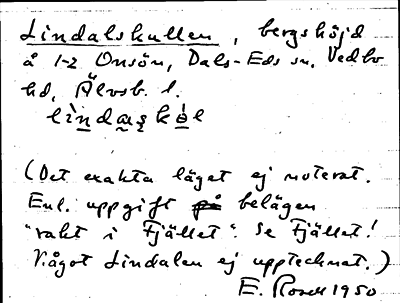 Lindalskullen, bergshöjd
å 1-2 Onsön, Dals-Eds sn, Vedbo
hd, Älvsb. l.
lìndaskòl
(Det exakta läget ej noterat.
Enl. uppgift på belägen
"rakt i Fjället". Se Fjället!
Något Lindalen ej upptecknat.)
E. Rosell 1950